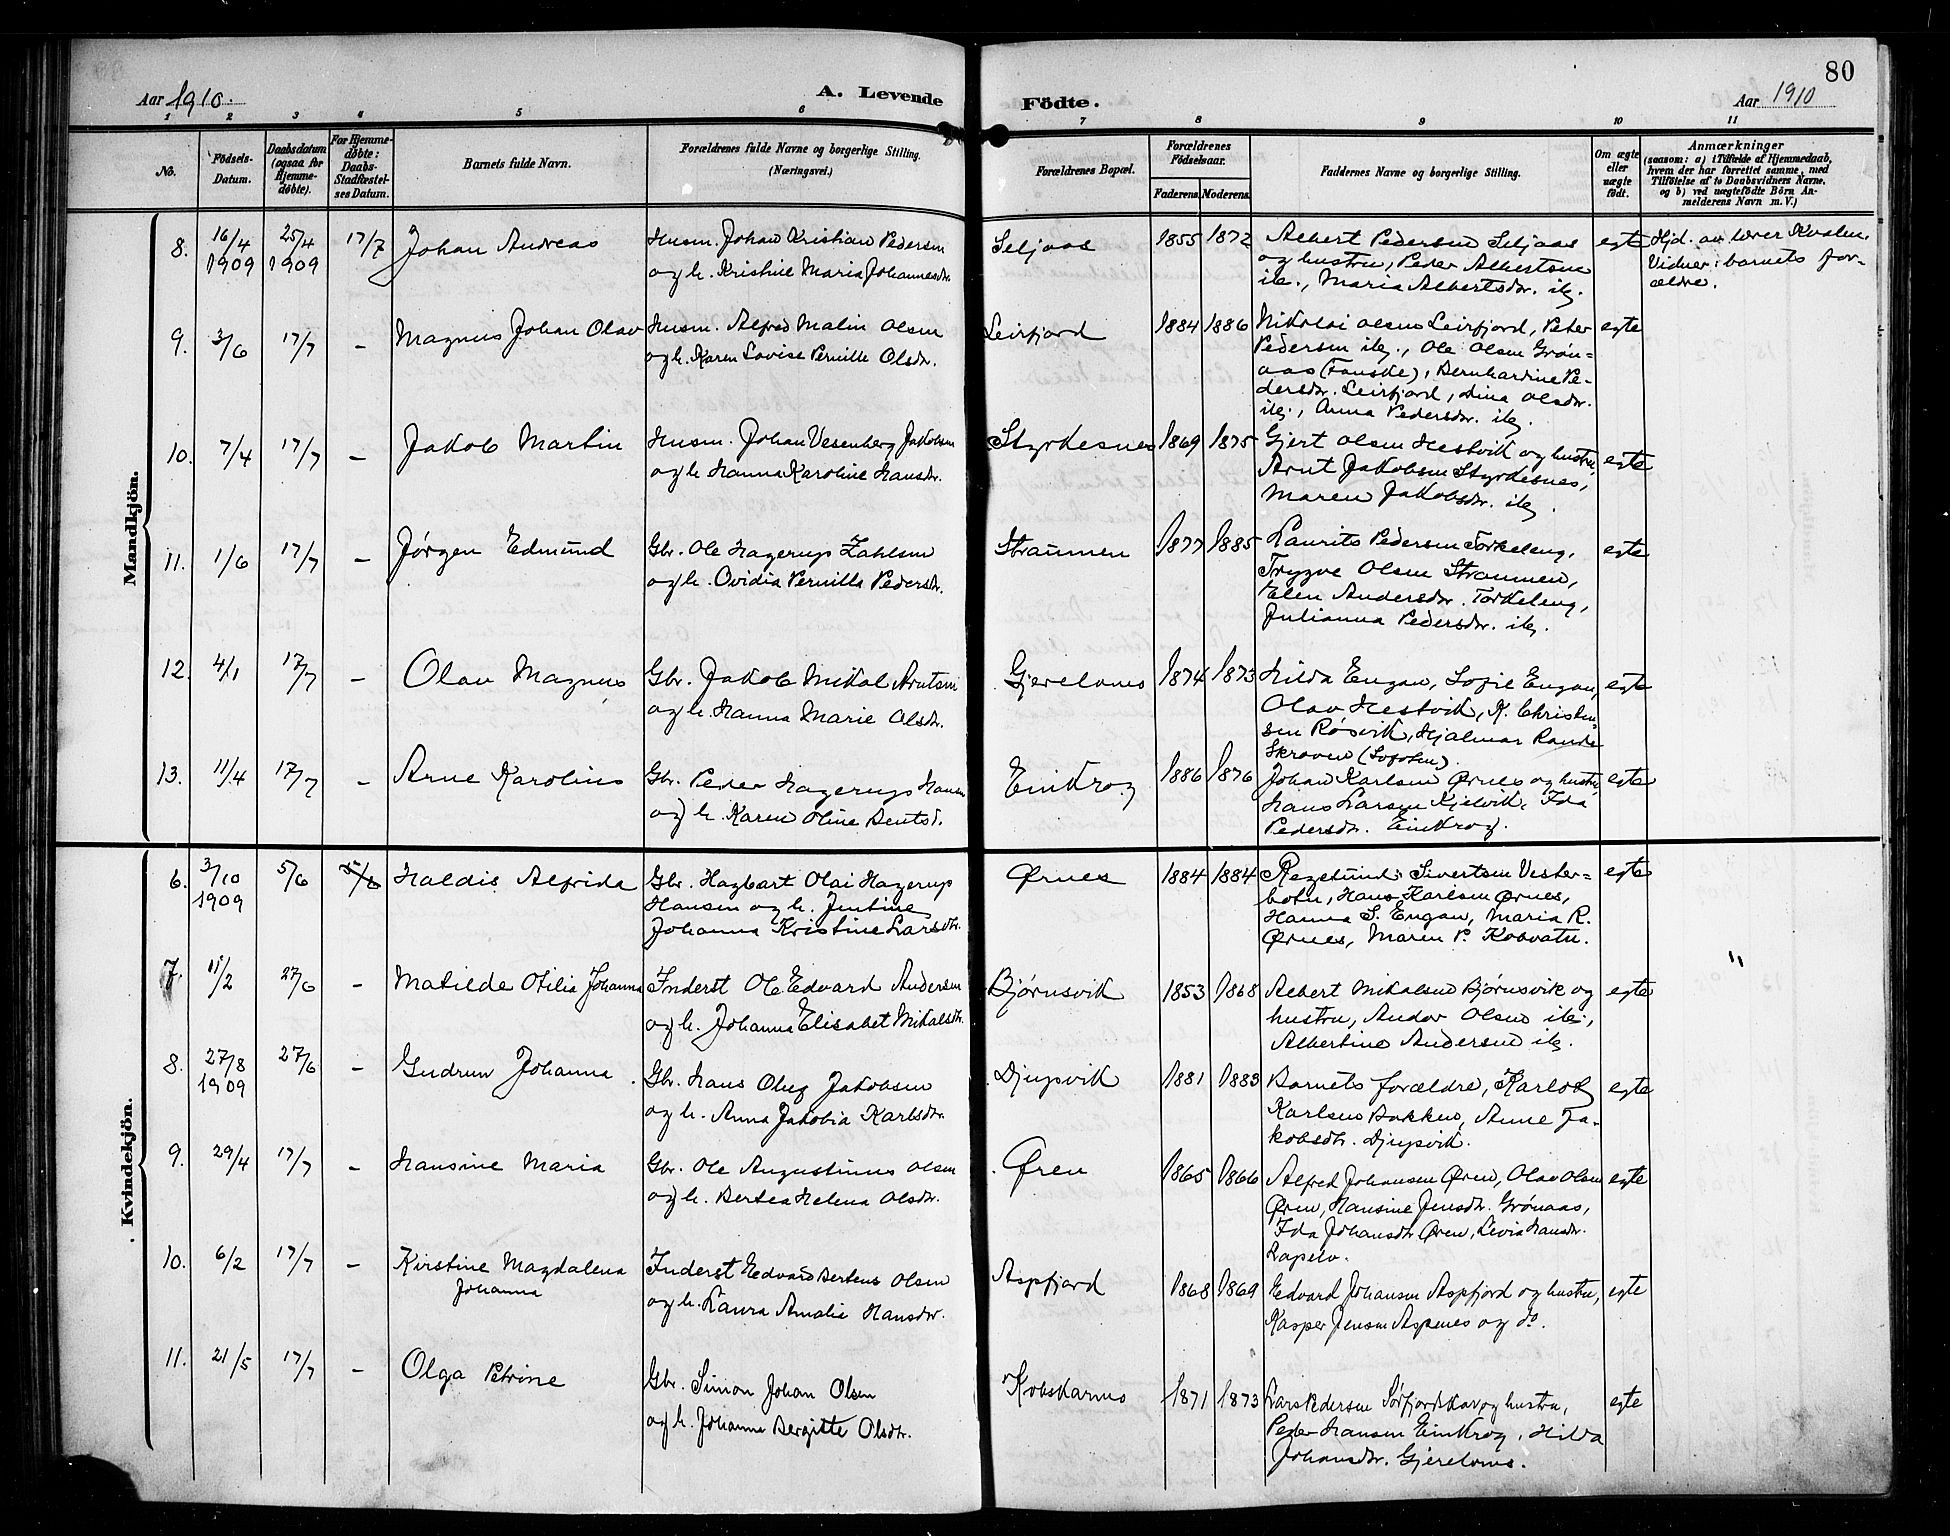 80
Aar 1910.
A. Levende
Födte.
Aar 1910
1 2 3 4 5 6 7 8 9 10 11
No.
Födsels-
Datum.
Daabsdatum
(ogsaa for
Hjemme-
døbte).
For Hjemme-
døbte:
Daabs-
Stadfæstel-
ses Datum.
Barnets fulde Navn.
Forældrenes fulde Navne og borgerlige Stilling.
(Næringsvei.)
Forældrenes Bopæl.
Forældrenes
Födselsaar.
Faderens. Moderens.
Faddernes Navne og borgerlige Stilling.
Om ægte
eller
uægte
født.
Anmærkninger
(saasom: a) i Tilfælde af Hjemmedaab,
hvem der har forrettet samme, med
Tilföielse af to Daabsvidners Navne,
og b) ved uægtefödte Börn An-
melderens Navn m. V.)
Mandkjön.
8. 16/4 1909 25/4 1909 17/7 Johan Andreas
Husm. Johan Kristian Pedersen
og h. Kristine Maria Johannesdr.
Seljaas 1855 1872
Albert Pedersen Seljaas
og hustru, Peder Albertsen
ib., Maria Albertsdr. ib.
egte
Hjd. av lærer Kvalen.
Vidner: barnets for-
ældre.
9. 3/6 17/7 – Magnus Johan Olav
Husm. Alfred Malin Olsen
og h. Karen Lovise Pernille Olsdr.
Leirfjord 1884 1886
Nikolai Olsen Leirfjord, Peter
Pedersen ib., Ole Olsen Grøn-
aas (Fauske), Bernhardine Pe-
dersdr. Leirfjord, Dina Olsdr.
ib., Anna Pedersdr. ib.
egte
10. 7/4 17/7 – Jakob Martin
Husm. Johan Vesenberg Jakobsen
og h. Hanna Karoline Hansdr.
Styrkesnes 1869 1875
Gjert Olsen Hestvik og hustru,
Arnt Jakobsen Styrkesnes,
Maren Jakobsdr. ib.
egte
11. 1/6 17/7 – Jørgen Edmund
Gbr. Ole Hagerup Zahlsen
og h. Ovidia Pernille Pedersdr.
Straumen 1877 1885
Laurits Pedersen Torkeleng,
Trygve Olsen Straumen,
Elen Andersdr. Torkeleng,
Julianna Pedersdr. ib.
egte
12. 4/1 17/7 – Olav Magnus
Gbr. Jakob Mikal Arntsen
og h. Hanna Marie Olsdr.
Gjerelvnes 1874 1873
Hilda Engan, Sofie Engan,
Olav Hestvik, K. Christen-
sen Røsvik, Hjalmar Rande
Skroven (Lofoten).
egte
13. 11/4 17/7 – Arne Karolius
Gbr. Peder Hagerup Hansen
og h. Karen Oline Bentsd.
Einkrog 1886 1876
Johan Karlsen Ørnes og hustru,
Hans Larsen Kjelvik, Ida
Pedersdr. Einkrog.
egte
Kvindekjön.
6. 3/10 1909 5/6 5/6 Haldis Alfrida
Gbr. Hagbart Olai Hagerup
Hansen og h. Jentine
Johanna Kristine Larsdtr.
Ørnes 1884 1884
Regelund Sivertsen Vester-
botn, Hans Karlsen Ørnes,
Hanna S. Engan, Maria R.
Ørnes, Maren P. Kobvatn.
egte
"
7. 11/2 27/6 – Matilde Otilia Johanna
Inderst Ole Edvard Andersen
og h. Johanna Elisabet Mikalsdtr.
Bjørnsvik 1853 1868
Albert Mikalsen Bjørnsvik og
hustru, Andor Olsen ib.,
Albertine Andersen ib.
egte
8. 27/8 1909 27/6 – Gudrun Johanna
Gbr. Hans Oluf Jakobsen
og h. Anna Jakobia Karlsdtr.
Djupvik 1881 1883
Barnets forældre, Karlot
Karlsen Bakken, Anne Ja-
kobsdtr. Djupvik.
egte
9. 29/4 17/7 – Hansine Maria
Gbr. Ole Augustinus Olsen
og h. Bertea Helena Olsdr.
Øren 1865 1866
Alfred Johansen Øren, Olav Olsen
Øren, Hansine Jensdr. Grønaas,
Ida Johansdtr Øren, Levia Hansdr.
Rapelv.
egte
10. 6/2 17/7 – Kirstine Magdalena
Johanna
Inderst Edvard Bertens Olsen
og h. Laura Amalie Hansdr.
Aspfjord 1868 1869
Edvard Johansen Aspfjord og hustru,
Kasper Jensen Aspenes og do.
egte
11. 21/5 17/7 – Olga Petrine
Gbr. Simon Johan Olsen
og h. Johanna Bergitte Olsdtr.
Kobskarnes 1871 1873
Lars Pedersen Sørfjordskar og hustru,
Peder Hansen Einkrog, Hilda
Johansdtr. Gjerelvnes.
egte